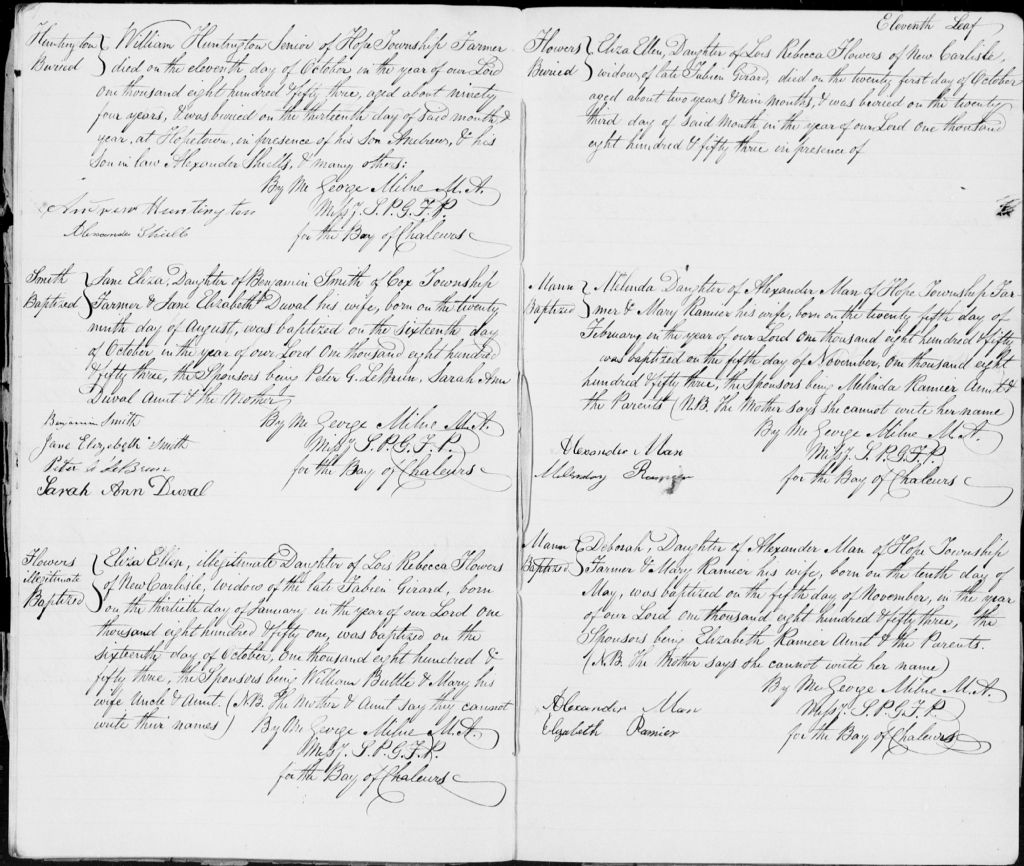 Huntington
Buried
William Huntington Senior of Hope Township Farmer
died on the eleventh day of October in the year of our Lord
one thousand eight hundred & fifty three, aged about ninety
four years, & was buried on the thirteenth day of said month &
year, at Hopetown, in presence of his Son Andrew, & his
Son in law Alexander Shiells, & many others:
By Me George Milne M.A.
Missy. S.P.G.F.P.
for the Bay of Chaleurs
Andrew Huntington
Alexander Shiells
Smith
Baptized
Jane Eliza, Daughter of Benjamin Smith of Cox Township
Farmer & Jane Elizabeth Duval his wife, born on the twenty
ninth day of August, was baptized on the Sixteenth day
of October in the year of our Lord One thousand eight hundred
& fifty three, the Sponsors being Peter G. LeBrun, Sarah Ann
Duval Aunt & the Mother
By Me George Milne M.A.
Missy. S.P.G.F.P.
for the Bay of Chaleurs
Benjamin Smith
Jane Elizebeth Smith
Peter G LeBrun
Sarah Ann Duval
Flowers
illegitimate
Baptized
Eliza Ellen, illegitimate Daughter of Lois Rebecca Flowers
of New Carlisle, widow of the late Fabien Girard, born
on the thirtieth day of January in the year of our Lord One
thousand eight hundred & fifty one, was baptized on the
sixteenth day of October, One thousand eight hundred &
fifty three, the Sponsors being William Buttle & Mary his
wife Uncle & Aunt. (N.B. The Mother & Aunt say they cannot
write their names)
By Me George Milne M.A.
Missy. S.P.G.F.P.
for the Bay of Chaleurs
Eleventh Leaf
Flowers
Buried
Eliza Ellen, Daughter of Lois Rebecca Flowers of New Carlisle,
widow of late Fabien Girard, died on the twenty first day of October
aged about two years & nine months, & was buried on the twenty
third day of Said Month in the year of our Lord One thousand
eight hundred & fifty three in presence of
Mann
Baptized
Melinda Daughter of Alexander Man of Hope Township Far-
mer & Mary Ramier his wife, born on the twenty fifth day of
February in the year of our Lord One thousand eight hundred & fifty
was baptized on the fifth day of November, One thousand eight
hundred & fifty three, the Sponsors being Melinda Ramier Aunt &
the Parents (N.B. The Mother says she cannot write her name)
By Me George Milne M.A.
Missy. S.P.G.F.P.
for the Bay of Chaleurs
Alexander Man
Mann
Baptized
Deborah, Daughter of Alexander Man of Hope Township
Farmer & Mary Ramier his wife, born on the tenth day of
May, was baptized on the fifth day of November, in the year
of our Lord One thousand eight hundred & fifty three, the
Sponsors being Elizabeth Ramier Aunt & the Parents.
(N.B. The Mother says she cannot write her name)
By Me George Milne M.A.
Missy. S.P.G.F.P.
for the Bay of Chaleurs
Alexander Man
Elezabeth Ramier